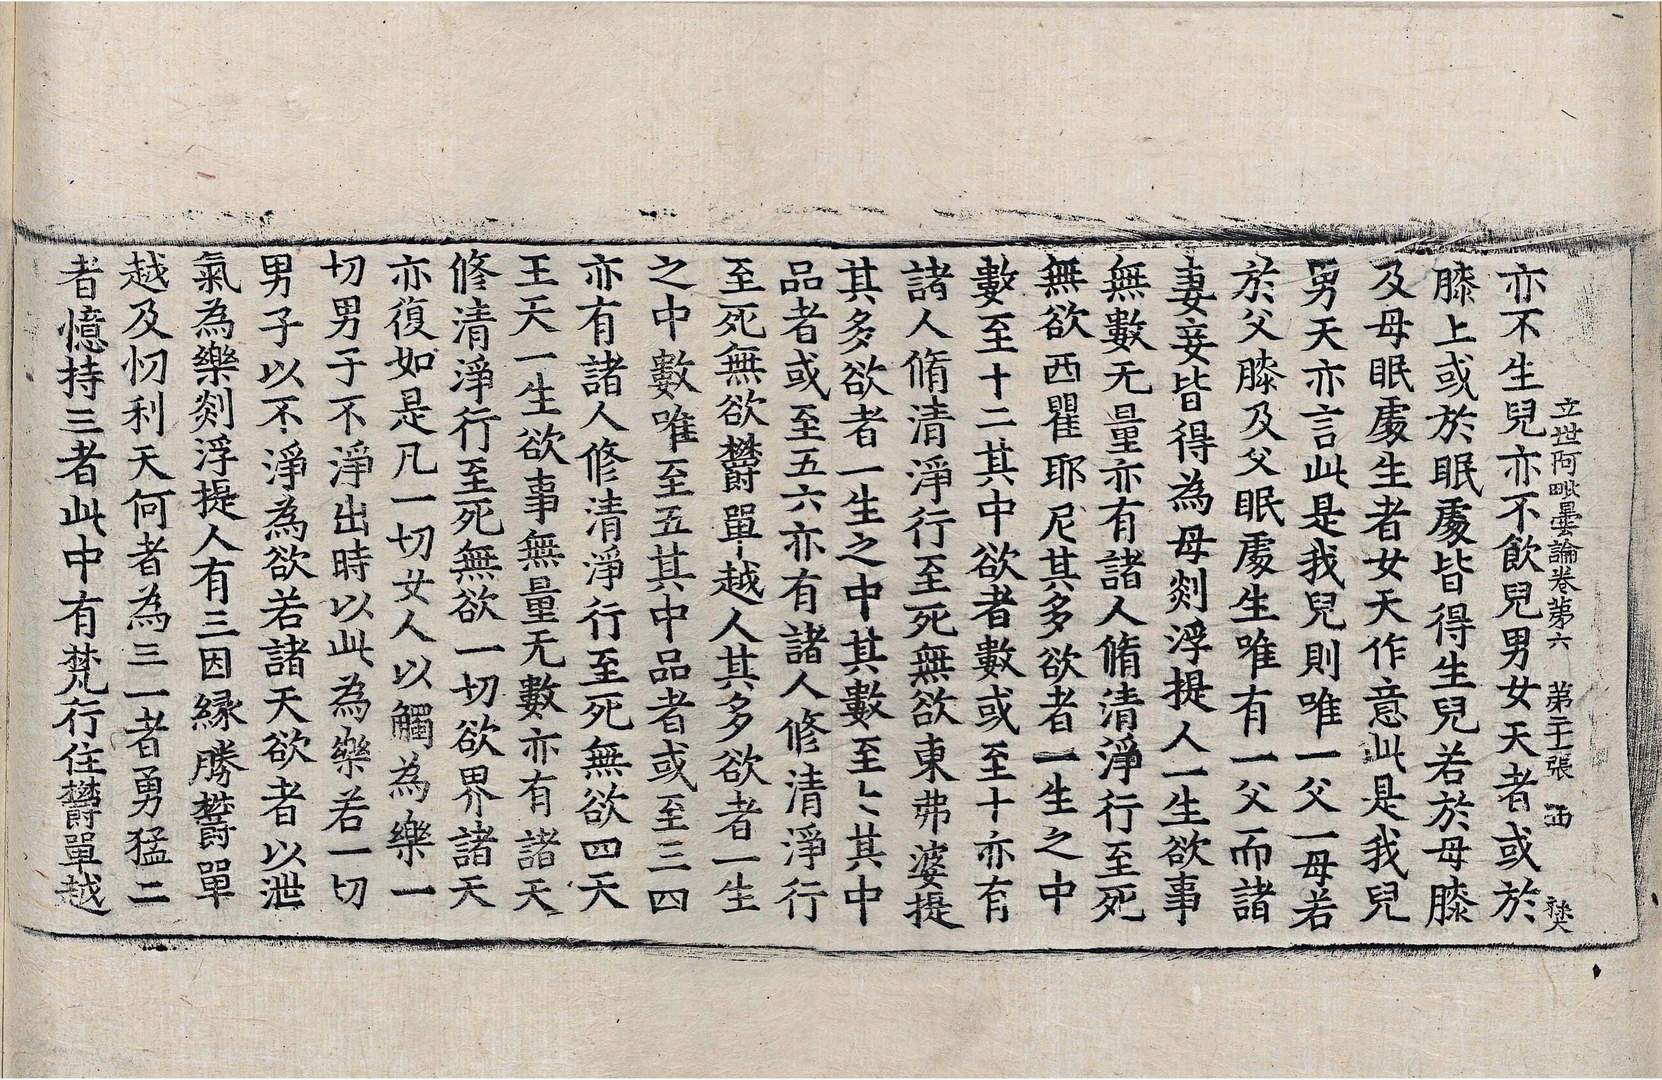 立世阿毗曇論卷第六　第二十張　函
亦不生兒亦不飲兒男女天者或於
膝上或於眠處皆得生兒若於母膝
及母眠處生者女天作意此是我兒
男天亦言此是我兒則唯一父一母若
於父膝及父眠處生唯有一父而諸
妻妾皆得為母剡浮提人一生欲事
無數无量亦有諸人脩清淨行至死
無欲西瞿耶尼其多欲者一生之中
數至十二其中欲者數或至十亦有
諸人脩清淨行至死無欲東弗婆提
其多欲者一生之中其數至七其中
品者或至五六亦有諸人修清淨行
至死無欲欝單越人其多欲者一生
之中數唯至五其中品者或至三四
亦有諸人修清淨行至死無欲四天
王天一生欲事無量无數亦有諸天
修清淨行至死無欲一切欲界諸天
亦復如是凡一切女人以觸為樂一
切男子不淨出時以此為樂若一切
男子以不淨為欲若諸天欲者以泄
氣為樂剡浮提人有三因緣勝欝單
越及忉利天何者為三一者勇猛二
者憶持三者此中有梵行住欝單越